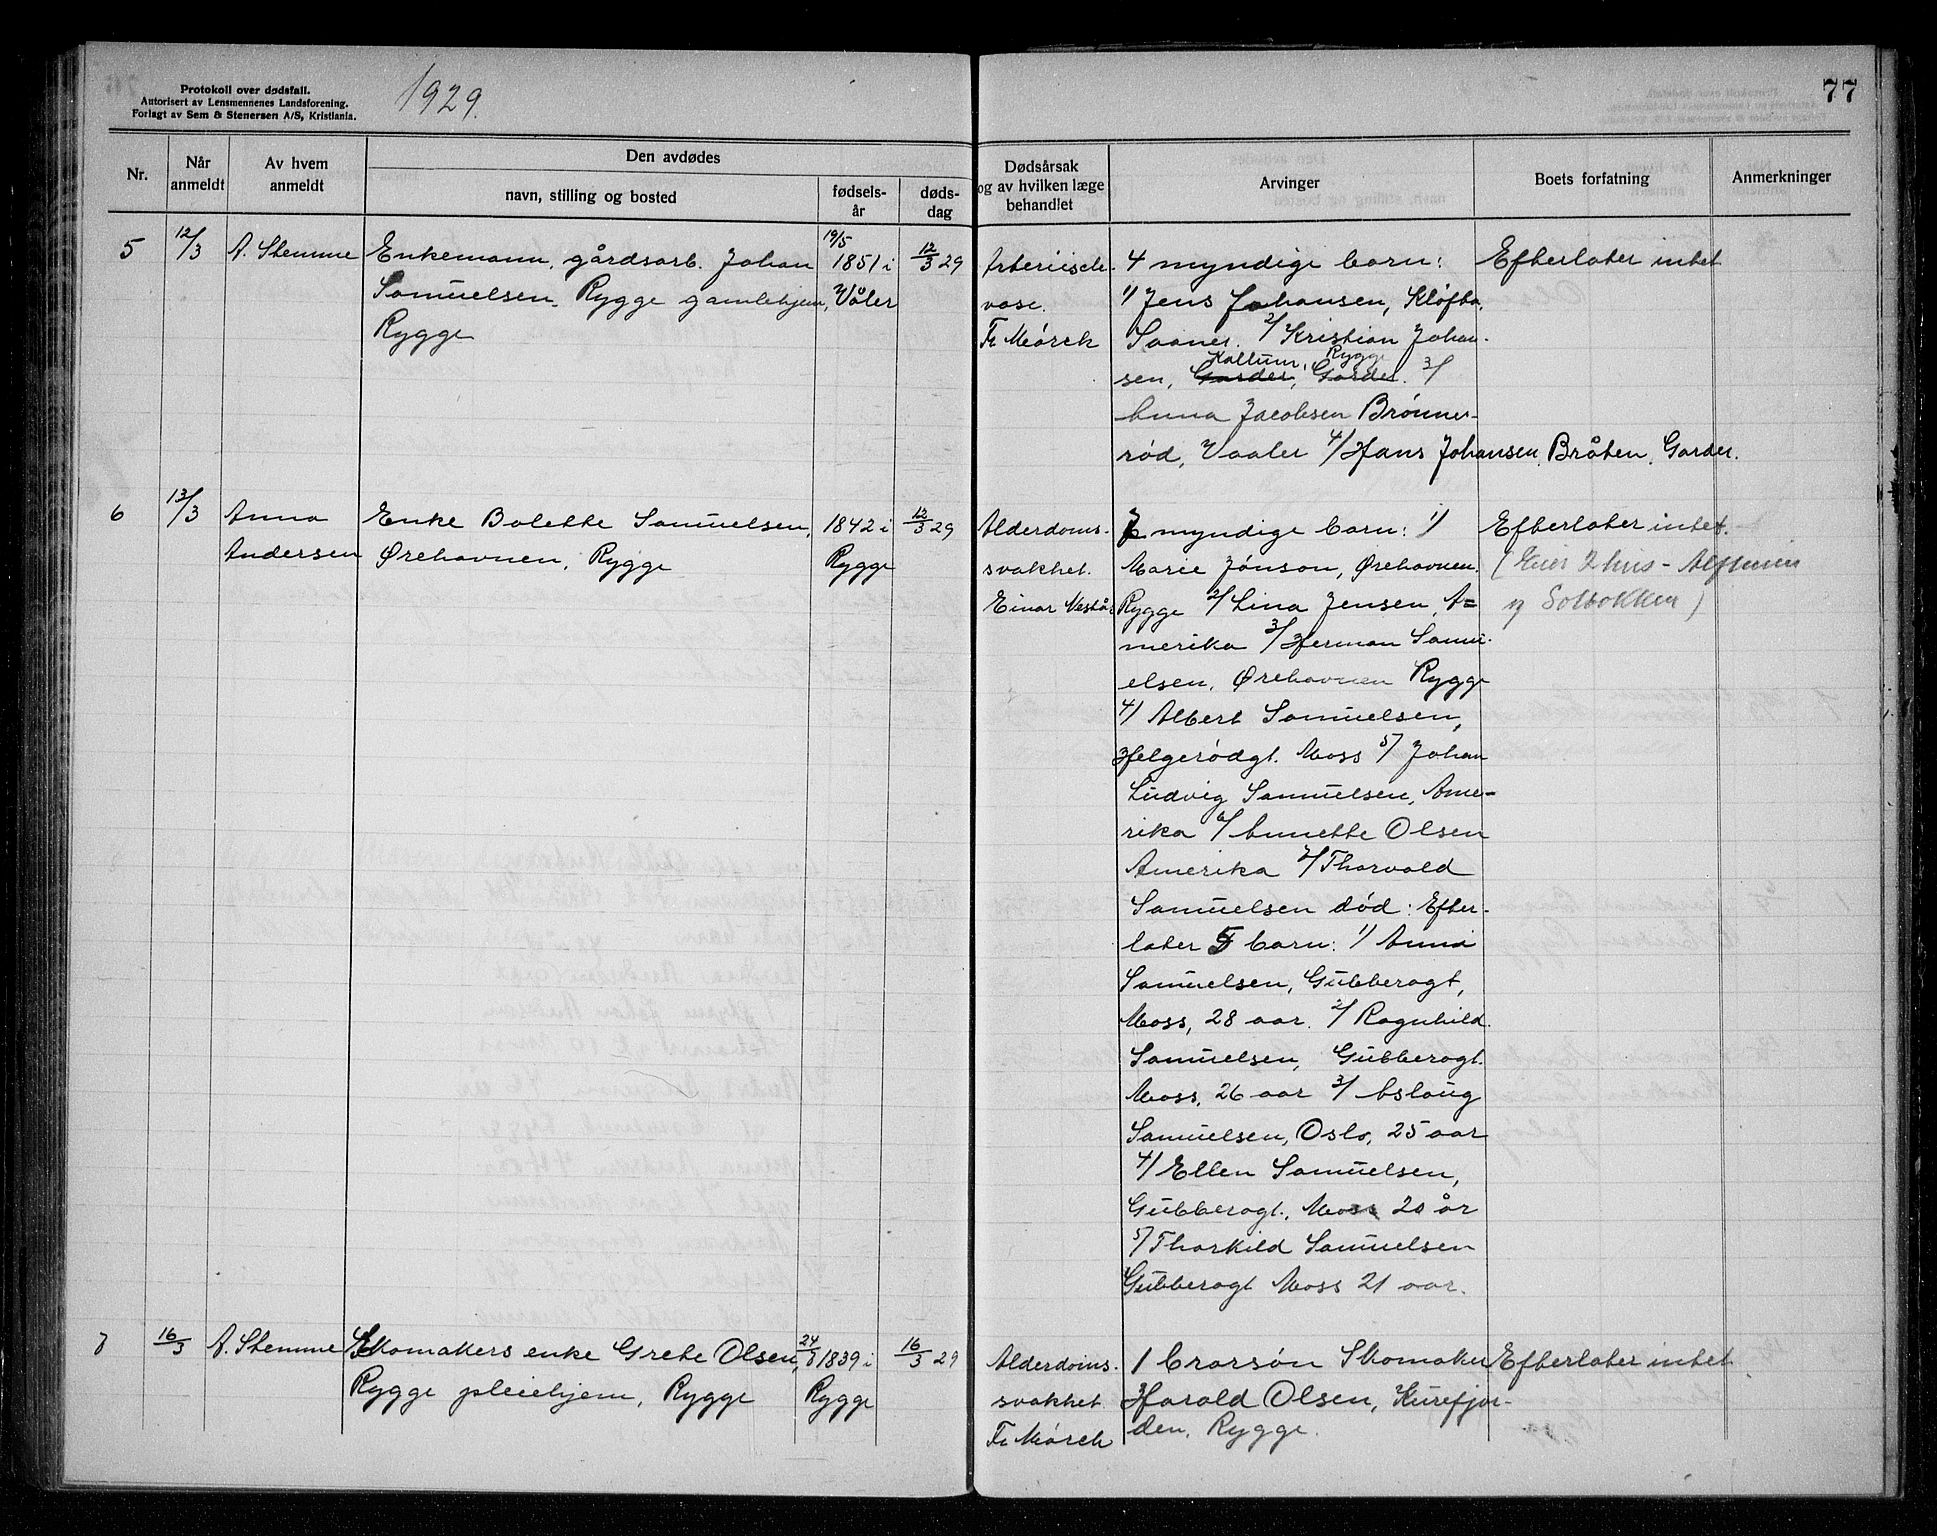 Protokoll over dødsfall.
Autorisert av Lensmennenes Landsforening.
Forlagt av Sem & Stenersen A/S, Kristiania.
1929.
77
Nr.
Når anmeldt
Av hvem anmeldt
Den avdødes
navn, stilling og bosted
fødsels-år
døds-dag
Dødsårsak og av hvilken læge behandlet
Arvinger
Boets forfatning
Anmerkninger
5
12/3
A. Stemme
Enkemann, gårdsarb. Johan
Samuelsen, Rygge gamlehjem,
Rygge
19/5
1851 i
Våler
12/3 29
vose.
Fr Mørch
4 myndige barn:
1/ Jens Johansen, Kløfta,
Saaner. 2/ Kristian Johan-
sen, Garder, Garder. 3/
Kallum, Rygge
Anna Jacobsen Brønne-
rød, Vaaler 4/ Hans Johansen, Bråten, Garder.
Efterlater intet
6
13/3
Anna
Andersen
Enke Bolette Samuelsen,
Ørehavnen, Rygge
1842 i
Rygge
12/3 29
Alderdoms-
svakhet.
Einar
myndige barn: 1/
Marie Jónson, Ørehavnen,
Rygge 2/ Lina Jensen, A=
merika 3/ Herman Samu-
elsen, Ørehavnen Rygge
4/ Albert Samuelsen,
Helgerødgt. Moss 5/ Johan
Ludvig Samuelsen, Ame-
rika 6/ Annette Olsen
Amerika 7/ Thorvald
Samuelsen død: Efter-
later 5 barn: 1/ Anna
Samuelsen, Gubberogt,
Moss, 28 aar. 2/ Ragnhild
Samuelsen, Gubberogt.
Moss, 26 aar 3/ Aslaug
Samuelsen, Oslo, 25 aar
4/ Ellen Samuelsen,
Gubberogt., Moss 20 år
5/ Thorkild Samuelsen
Gubberogt Moss 21 aar.
Efterlater intet.
(Eier 2 hus - Alfheim
og Solbakken)
7
16/3
A. Stemme
Skomakers enke Grete Olsen,
Rygge pleiehjem, Rygge
1839 i
Rygge
16/3 29
Alderdoms-
svakhet
Fr Mørch
1 brorsøn Skomaker
Harald Olsen, Kurefjor-
den, Rygge.
Efterlater intet